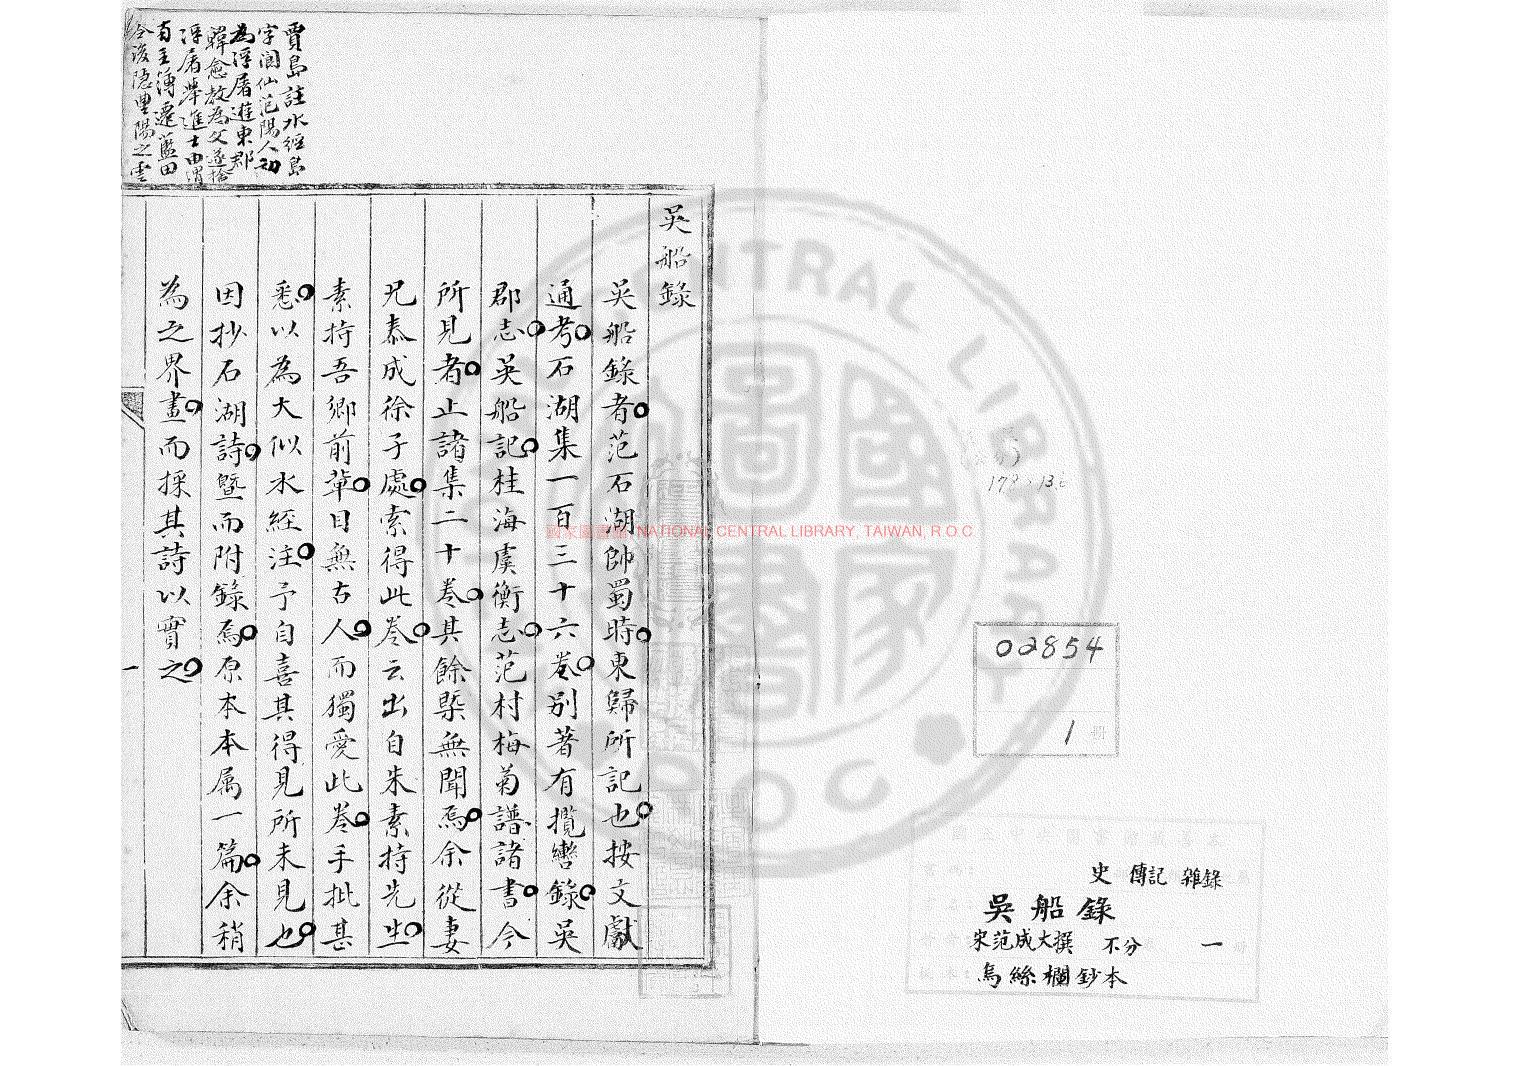 史 傳記 雜錄
吳船錄
宋范成大撰 不分 一
烏絲欄鈔本
02854
1 冊
178.136
賈島註水經島
字閬仙范陽人初
為浮屠遊東都
韓愈教為文遂捨
浮屠舉進士由渭
吳船錄
吳船錄者范石湖帥蜀時東歸所記也按文獻
通考石湖集一百三十六卷別著有攬轡錄吳
郡志吳船記桂海虞衡志范村梅菊譜諸書今
所見者止諸集二十卷其餘槩無聞焉余從妻
兄泰成徐子處索得此卷云出自朱素持先生
素持吾鄉前軰目無古人而獨愛此卷手批甚
悉以為大似水經注予自喜其得見所未見也
因抄石湖詩暨而附錄焉原本本属一篇余稍
為之界畫而採其詩以實之
一
國家圖書館 NATIONAL CENTRAL LIBRARY, TAIWAN, R.O.C